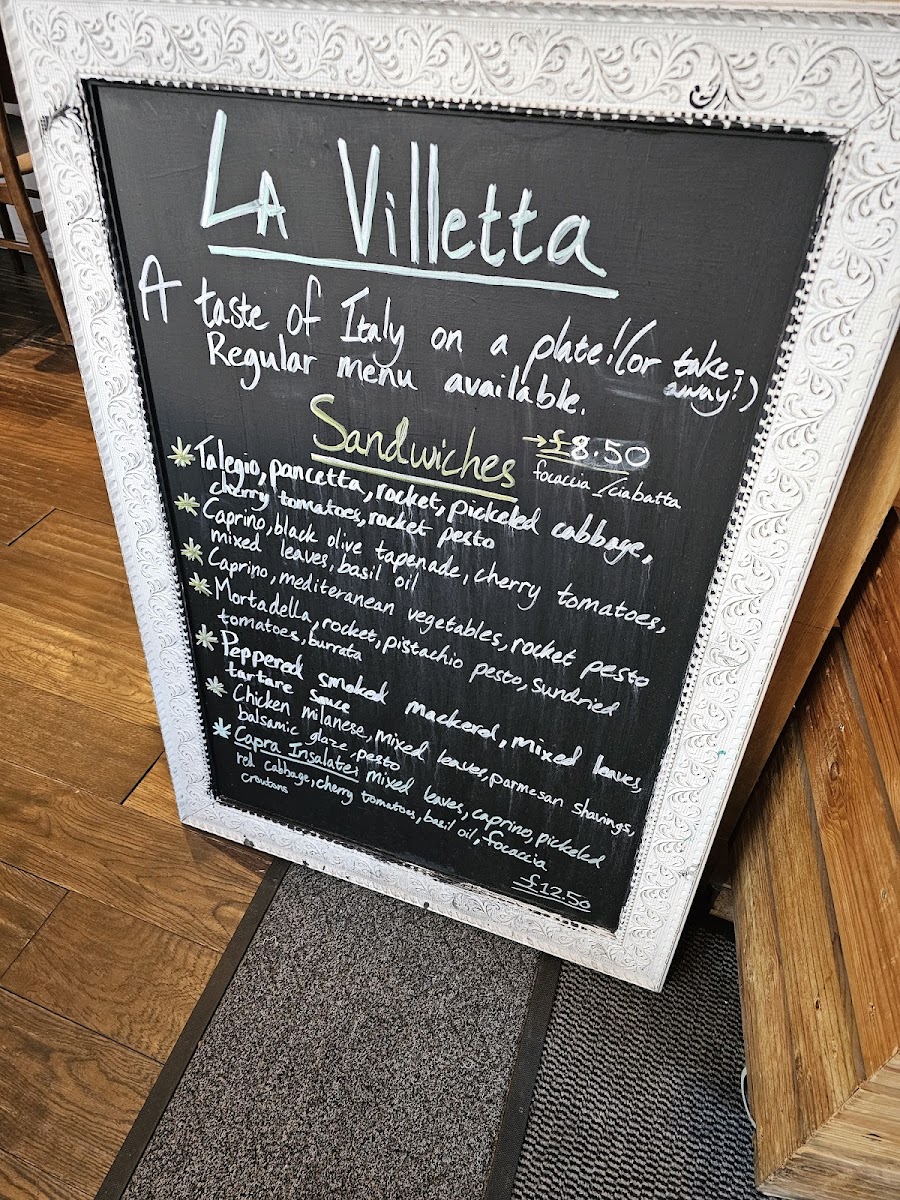 LA Villetta
A taste of Italy on a plate! (or take-
away!)
Regular menu available.
Sandwiches → £8.50
focaccia / ciabatta
* Talegio, pancetta, rocket, pickeled cabbage,
cherry tomatoes, rocket pesto
* Caprino, black olive tapenade, cherry tomatoes,
mixed leaves, basil oil
* Caprino, mediteranean vegetables, rocket pesto
* Mortadella, rocket, pistachio pesto, sundried
tomatoes, burrata
* Peppered smoked mackerel, mixed leaves,
tartare sauce
* Chicken milanese, mixed leaves, parmesan shavings,
balsamic glaze, pesto
* Capra Insalate: mixed leaves, caprino, pickeled
red cabbage, cherry tomatoes, basil oil, focaccia
croutons
£12.50